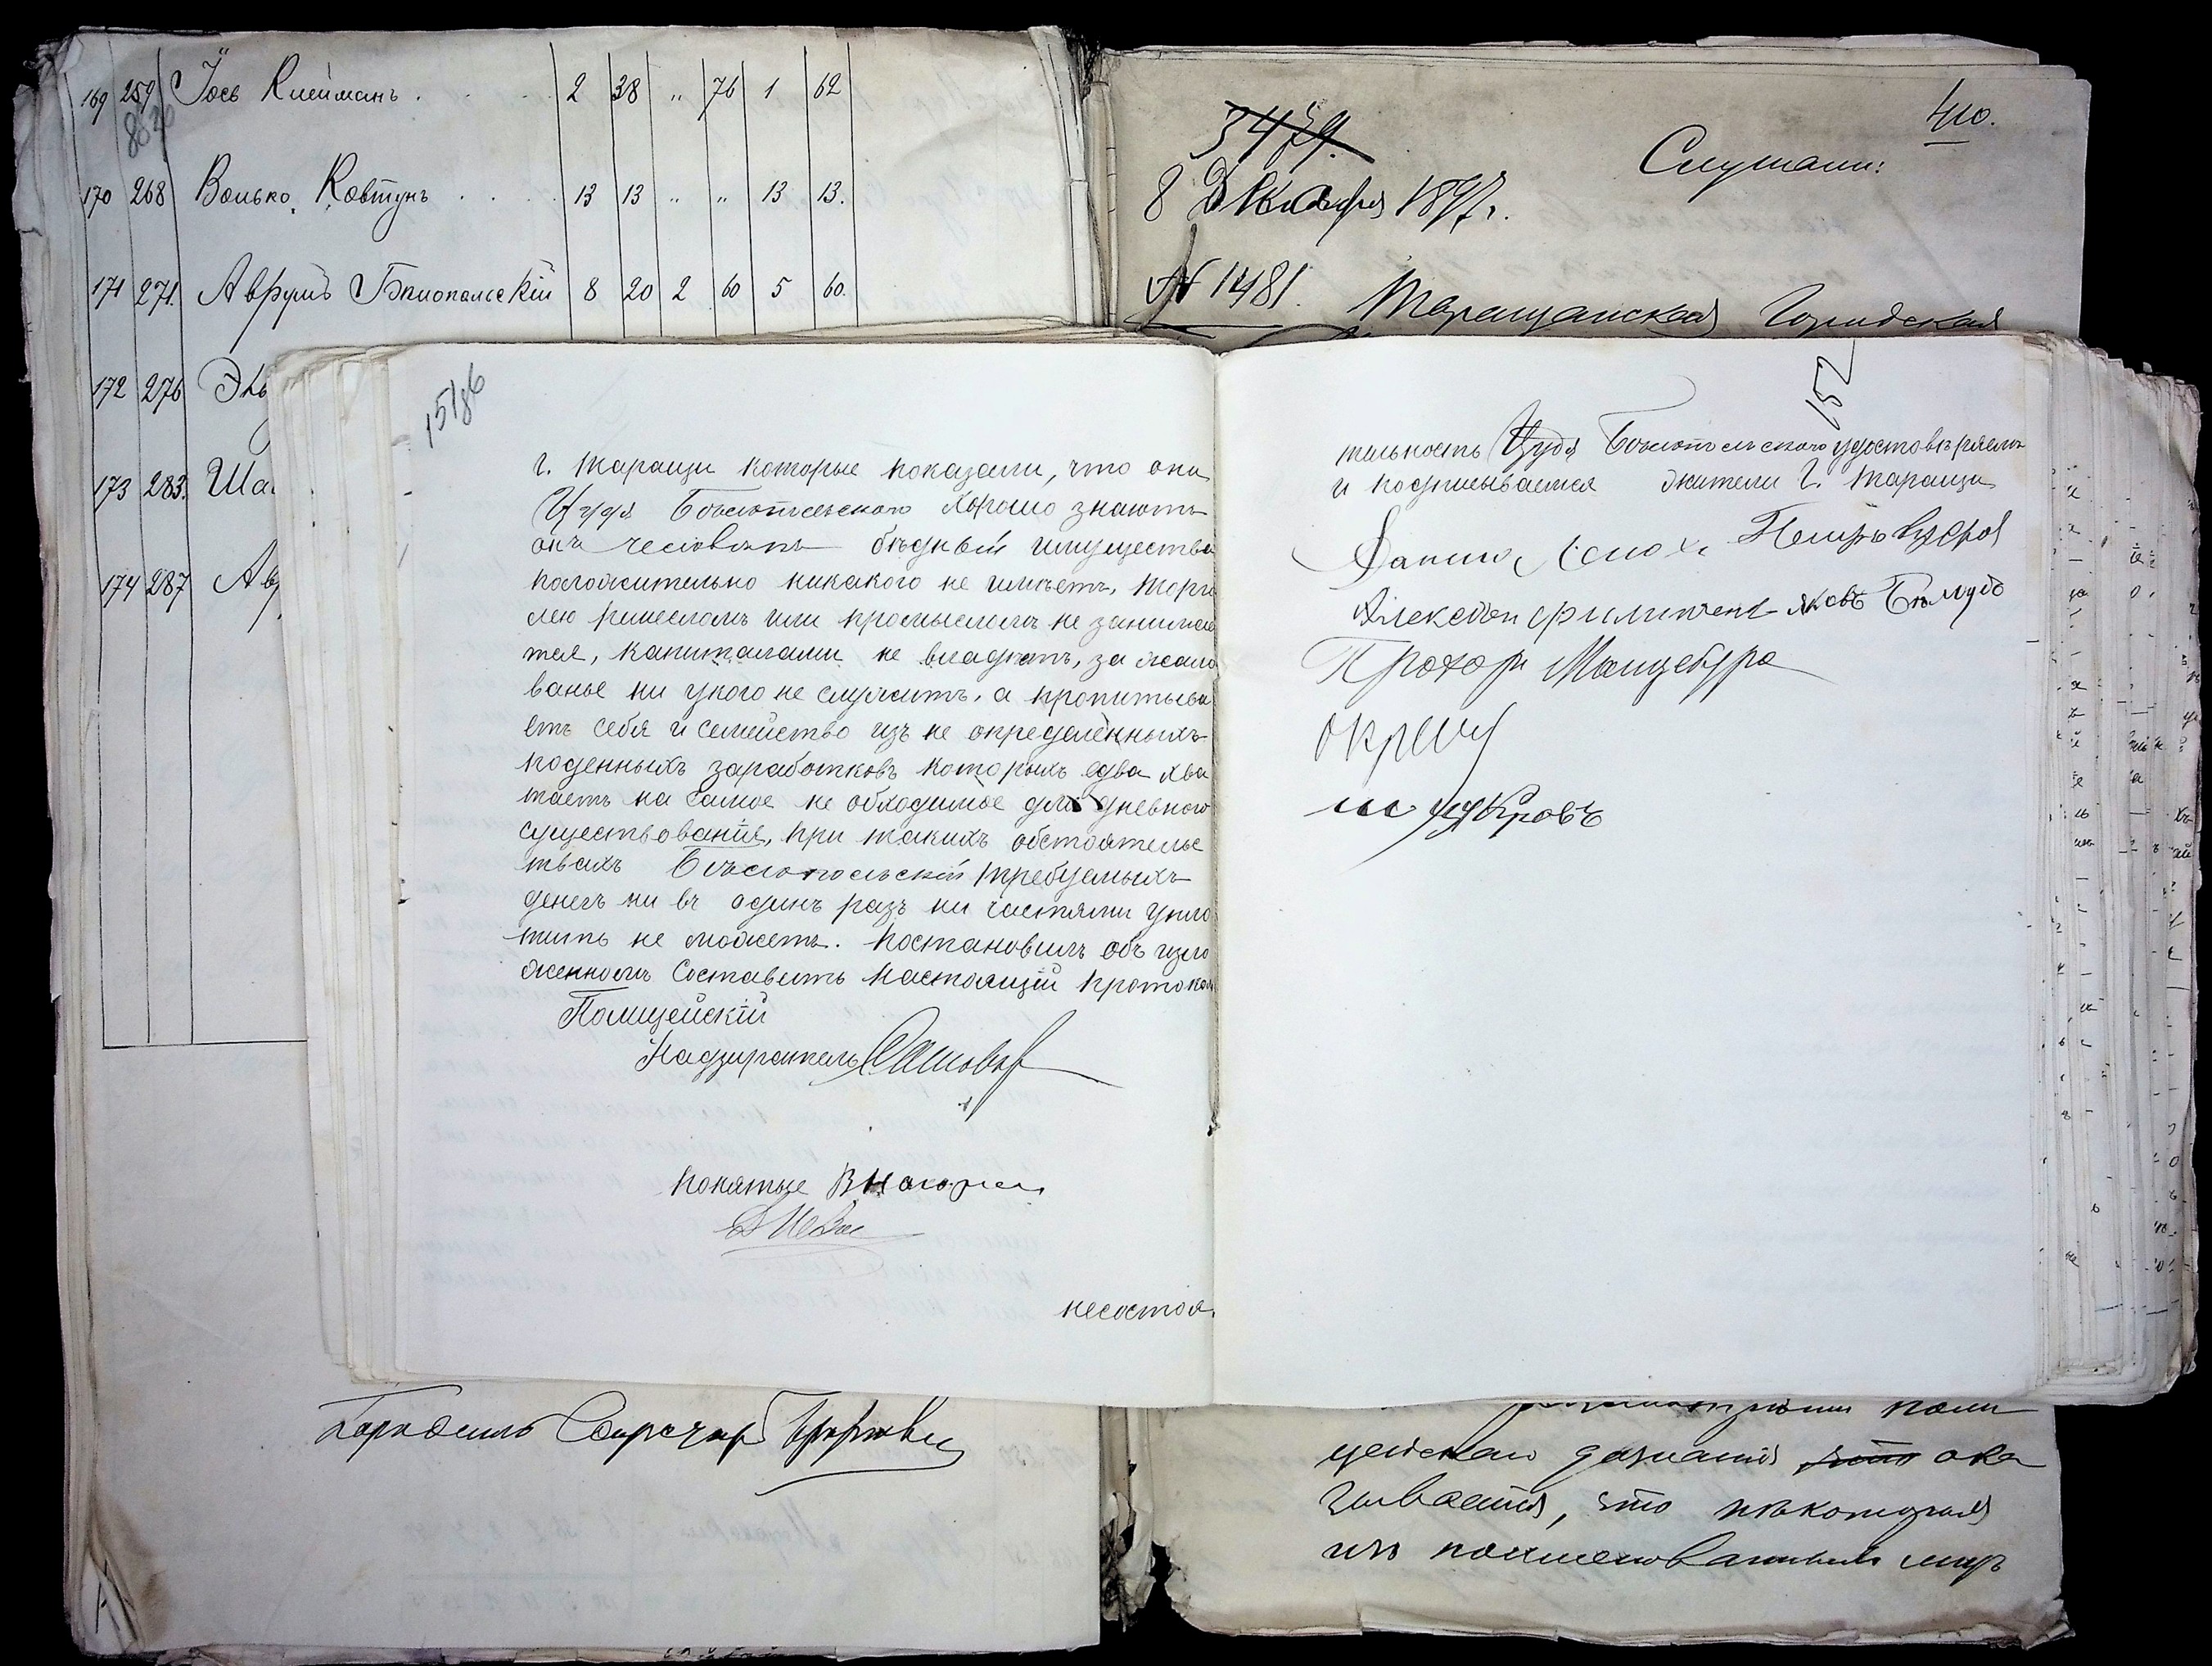 169 259 Іось Клейманъ . . . 2 38 " 76 1 62
170 268 Волько Ковтунъ . . . 13 13 " " 13 13.
171 271. Аврумъ Бѣлопольскій 8 20 2 60 5 60.
172 276
173 283.
174 287
3479.
410.
Слушали:
8 Декабря 1897 г.
№ 1481. Таращанская Городская
г. Таращи которые показали, что они
Иуда Бѣлопольскаго хорошо знаютъ
онъ человѣкъ бѣдный имущества
положительно никакого не имѣетъ, торго
лею ремесломъ или промысломъ не занимае
тся, капиталами не владѣетъ, за жало
ванье ни укого не служитъ, а пропитыва
етъ себя и семейство изъ не определенныхъ
поденныхъ заработковъ которыхъ едва хва
таетъ на самое не обходимое для дневного
существованія, при такихъ обстоятельс
твахъ Бѣлопольскій требуемыхъ
денегъ ни въ одинъ разъ ни частями упла
тить не можетъ. Постановилъ объ изло
женномъ составить настоящій протоколъ
Полицейскій
Надзиратель
Понятые
несостоя
152
тельность Иуда Бѣлопольскаго удостовѣряемъ
и подписываемся жители г. Таращи
Петръ
Яковъ
Прохоръ
цейскаго дознанія что ока
зывается, что нѣкоторыя
изъ поименованныхъ лицъ